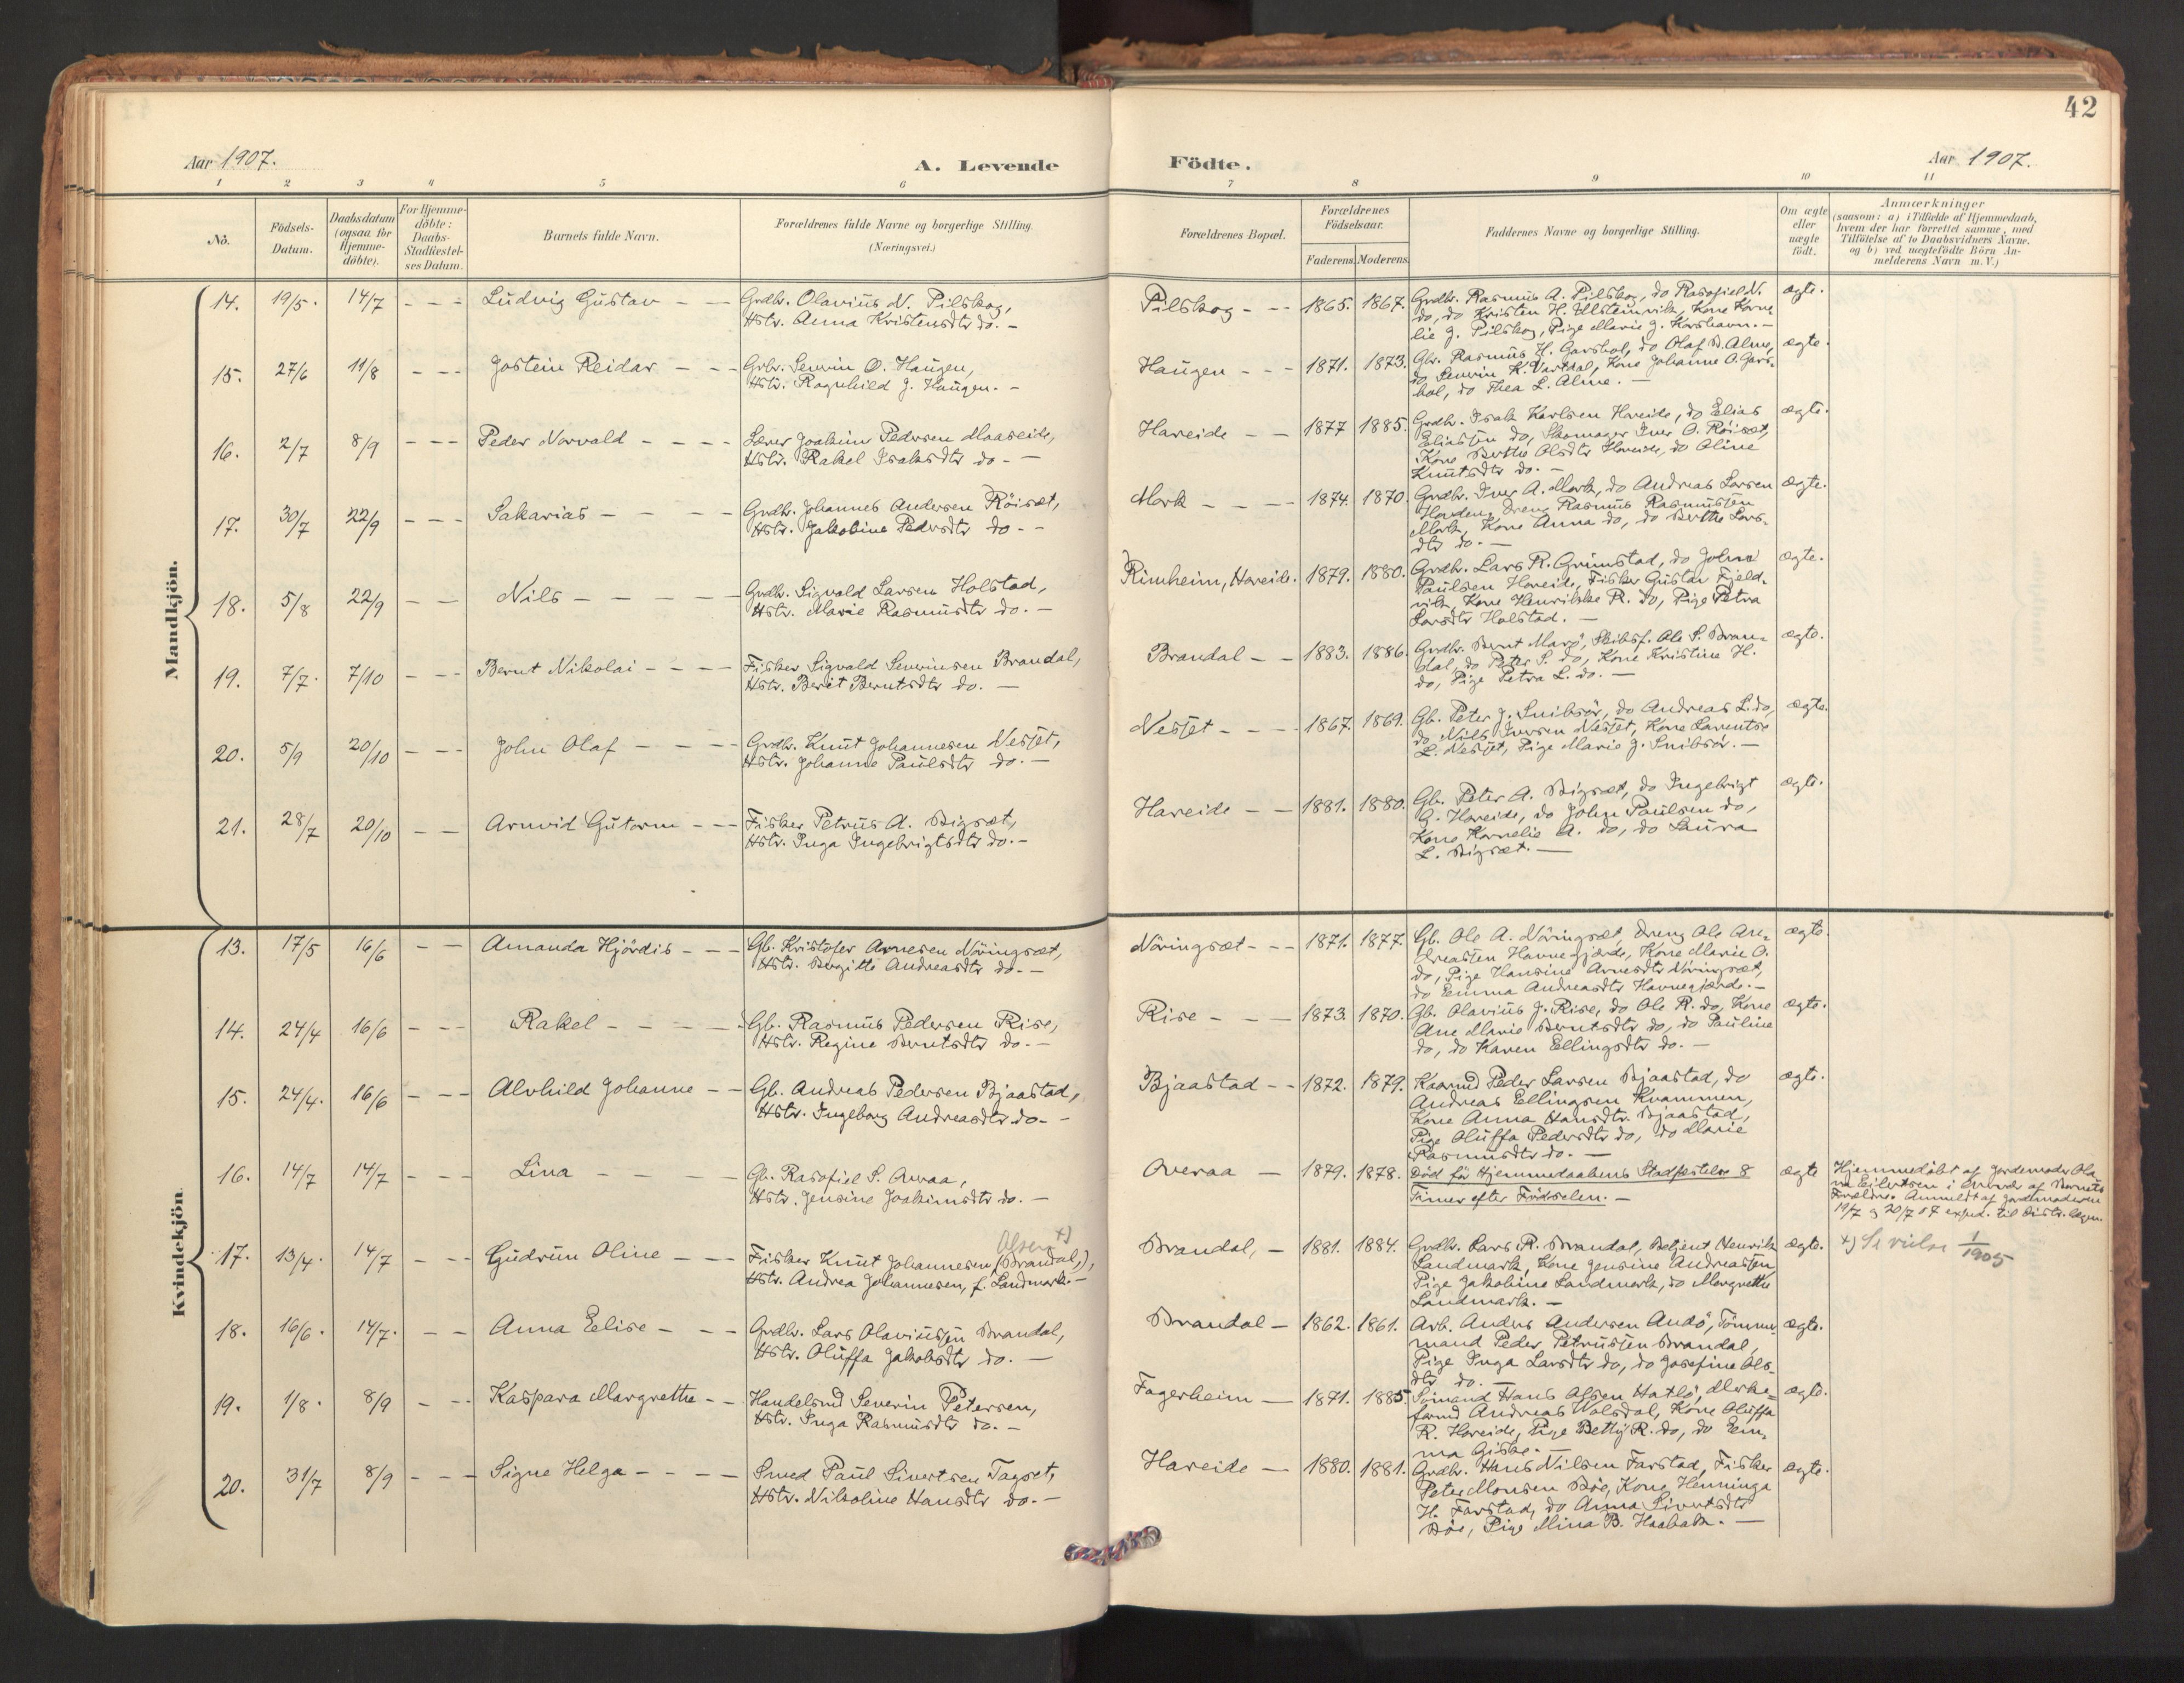 42
Aar 1907.
A. Levende
Födte.
Aar 1907.
1 2 3 4 5 6 7 8 9 10 11
Nö.
Födsels-Datum.
Daabsdatum (ogsaa for Hjemme-döbte).
For Hjemme-döbte: Daabs-Stadfæstel-ses Datum.
Barnets fulde Navn.
Forældrenes fulde Navne og borgerlige Stilling.
(Næringsvei.)
Forældrenes Bopæl.
Forældrenes Födselsaar.
Faderens. Moderens.
Faddernes Navne og borgerlige Stilling.
Om ægte eller uægte födt.
Anmærkninger
(saasom: a) i Tilfælde af Hjemmedaab,
hvem der har forrettet samme, med
Tilföielse af to Daabsvidners Navne.
og b) ved uægtefödte Börn An-
melderens Navn m. V.)
Mandkjön.
14. 19/5. 14/7 - - - Ludvig Gustav - - Grdbr. Olavius N. Pilskog,
Hstr. Anna Kristensdtr do. -
Pilskog - - 1865. 1867. Grdbr. Rasmus A. Pilskog, do Rasofiel N.
do, do Kristen H. Ulsteinvik, Kone Korne
lie J. Pilskog, Pige Marie J. Korshavn. -
ægte.
15. 27/6 11/8 - - - Jostein Reidar - - - Grbr. Severin O. Haugen,
Hstr. Ragnhild J. Haugen. -
Haugen - - - 1871. 1873. Gbr. Rasmus H. Garshol, do Olaf B. Alme,
do, Severin K. Vartdal, Kone Johanne O. Gars-
hol, do Thea L. Alme. -
ægte.
16. 2/7 8/9 - - - Peder Norvald - - - - Lærer Joakim Pedersen Maaseide,
Hstr. Rakel Isaksdtr do - -
Hareide - - 1877 1885. Grdbr. Isak Karlsen Hareide, do Elias
Eliassen do, Skomager Iver O. Röiset,
Kone Berthe Olsdtr Hareide, do Oline
Knutsdtr do. -
ægte.
17. 30/7 22/9 - - - Sakarias - - - - - Grdbr. Johannes Andersen Röiset,
Hstr. Jakobine Pedersdtr do - -
Mork - - - - 1874. 1870. Grdbr. Iver A. Mork, do Andreas Larsen
Dreng Rasmus Rasmussen
Mork, Kone Anna do, do Berthe Lars-
dtr do. -
ægte.
18. 5/8 22/9 - - Nils - - - - - Grdbr. Sigvald Larsen Holstad,
Hstr. Marie Rasmusdtr do. -
Rimheim, Hareide. 1879. 1880. Grdbr. Lars R. Grimstad, do John
Paulsen Hareide, Fisker Gustav Fjeld-
vik, Kone Henrikke R. do, Pige Petra
Larsdtr Holstad. -
ægte.
19. 7/7. 7/10 - - - Bernt Nikolai - - - - Fisker Sigvald Severinsen Brandal,
Hstr. Berit Berntsdtr do. -
Brandal - - 1883. 1886. Grdbr. Bernt Marö, Skibsf. Ole S. Bran-
dal, do Peter S. do, Kone Kristine H.
do, Pige Petra L. do. -
ægte.
20. 5/9 20/10 - - - John Olaf - - - - Grdbr. Knut Johannesen Nesset,
Hstr. Johanne Paulsdtr do. -
Nesset - - - - 1867. 1869. Gb. Peter J. Snibsör, do Andreas L. do,
do Nils Iversen Nesset, Kone Larentse
L. Nesset, Pige Marie J. Snibsör. -
ægte.
21. 28/7 20/10 - - Arnvid Gutorm - - - Fisker Petrus A. Bigset,
Hstr. Inga Ingebrigtsdtr do. -
Hareide - - 1881. 1880. Gb. Peter A. Bigset, do Ingebrigt
G. Hareide, do John Paulsen do,
Kone Kornelie A. do, do Laura
L. Bigset. -
ægte.
Kvindekjön.
13. 17/5 16/6 - - Amanda Hjördis - - - Gb. Kristofer Arnesen Nöringset,
Hstr. Birgitte Andreasdtr do. -
Nöringset - - - 1871. 1877. Gb. Ole A. Nöringset, Dreng Ole An-
dreassen Havnegjærde, Kone Marie O.
do, Pige Hansine Arnesdtr Nöringset,
do Emma Andreasdtr Havnegjærde. -
ægte.
14. 24/4 16/6 - - - Rakel - - - - Gb. Rasmus Pedersen Rise,
Hstr. Regine Berntsdtr do. -
Rise - - - 1873. 1870. Gb. Olavius J. Rise, do Ole R. do, Kone
Ane Marie Berntsdtr do, do Pauline
do, do Karen Ellingsdtr do. -
ægte.
15. 24/4. 16/6 - - - Alvhild Johanne - - Gb. Andreas Pedersen Bjaastad,
Hstr. Ingeborg Andreasdtr do - -
Bjaastad - - 1872. 1879. Kaarmd Peder Larsen Bjaastad, do
Andreas Ellingsen Kvammen,
Kone Anna Hansdtr. Bjaastad,
Pige Oluffa Pedersdtr do, do Marie
Rasmusdtr do. -
ægte.
16. 14/7 14/7 - - - Lina - - - - Gb. Rasofiel S. Overaa,
Hstr. Jensine Joakimsdtr do. -
Overaa - 1879. 1878. Död för Hjemmedaabens Stadfestelse 8
Timer efter Födselen. -
ægte
Hjemmedöbt af Jordemoder Ola
va Eilertsen i Overvær af Barnets
Forældre. Anmeldt af Jordemoderen
19/7 og 20/7 07 exped. til Distr.lægen.
17. 13/4. 14/7 - - - Gudrun Oline - - - Fisker Knut Johannesen (Brandal),
Olsen +)
Hstr. Andrea Johannesen, f. Landmark. -
Brandal, - 1881. 1884. Grdbr. Lars R. Brandal, Betjent Henrik
Landmark, Kone Jensine Andreassen,
Pige Jakobine Landmark, do Margrethe
Landmark. -
ægte.
+) Se vielse 1/1905
18. 16/6. 14/7. - - Anna Elise - - - Grdbr. Lars Olaviussen Brandal,
Hstr. Oluffa Jakobsdtr do. -
Brandal - 1862. 1861. Arb. Anders Andersen Andö, Tömmer-
mand Peder Petrussen Brandal,
Pige Inga Larsdtr do, do Josefine Ols-
dtr do. -
ægte.
19. 1/8. 8/9 - - - Kaspara Margrethe - - Handelsmd Severin Petersen,
Hstr. Inga Rasmusdtr do. -
Fagerheim - 1871. 1885 Sömand Hans Olsen Hatlö,
Andreas Kone Oluffa
R. Hareide, Pige Betty R. do, do Em-
ma Giske. -
ægte.
20. 31/7 8/9 - - - Signe Helga - - - - Smed Paul Sivertsen Tagset,
Hstr. Nikoline Hansdtr do. -
Hareide - 1880. 1881. Grdbr. Hans Nilsen Farstad, Fisker
Peter Monsen Böe, Kone Henninga
H. Farstad, do Anna Sivertsdtr
Böe, Pige Mina B. -
ægte.